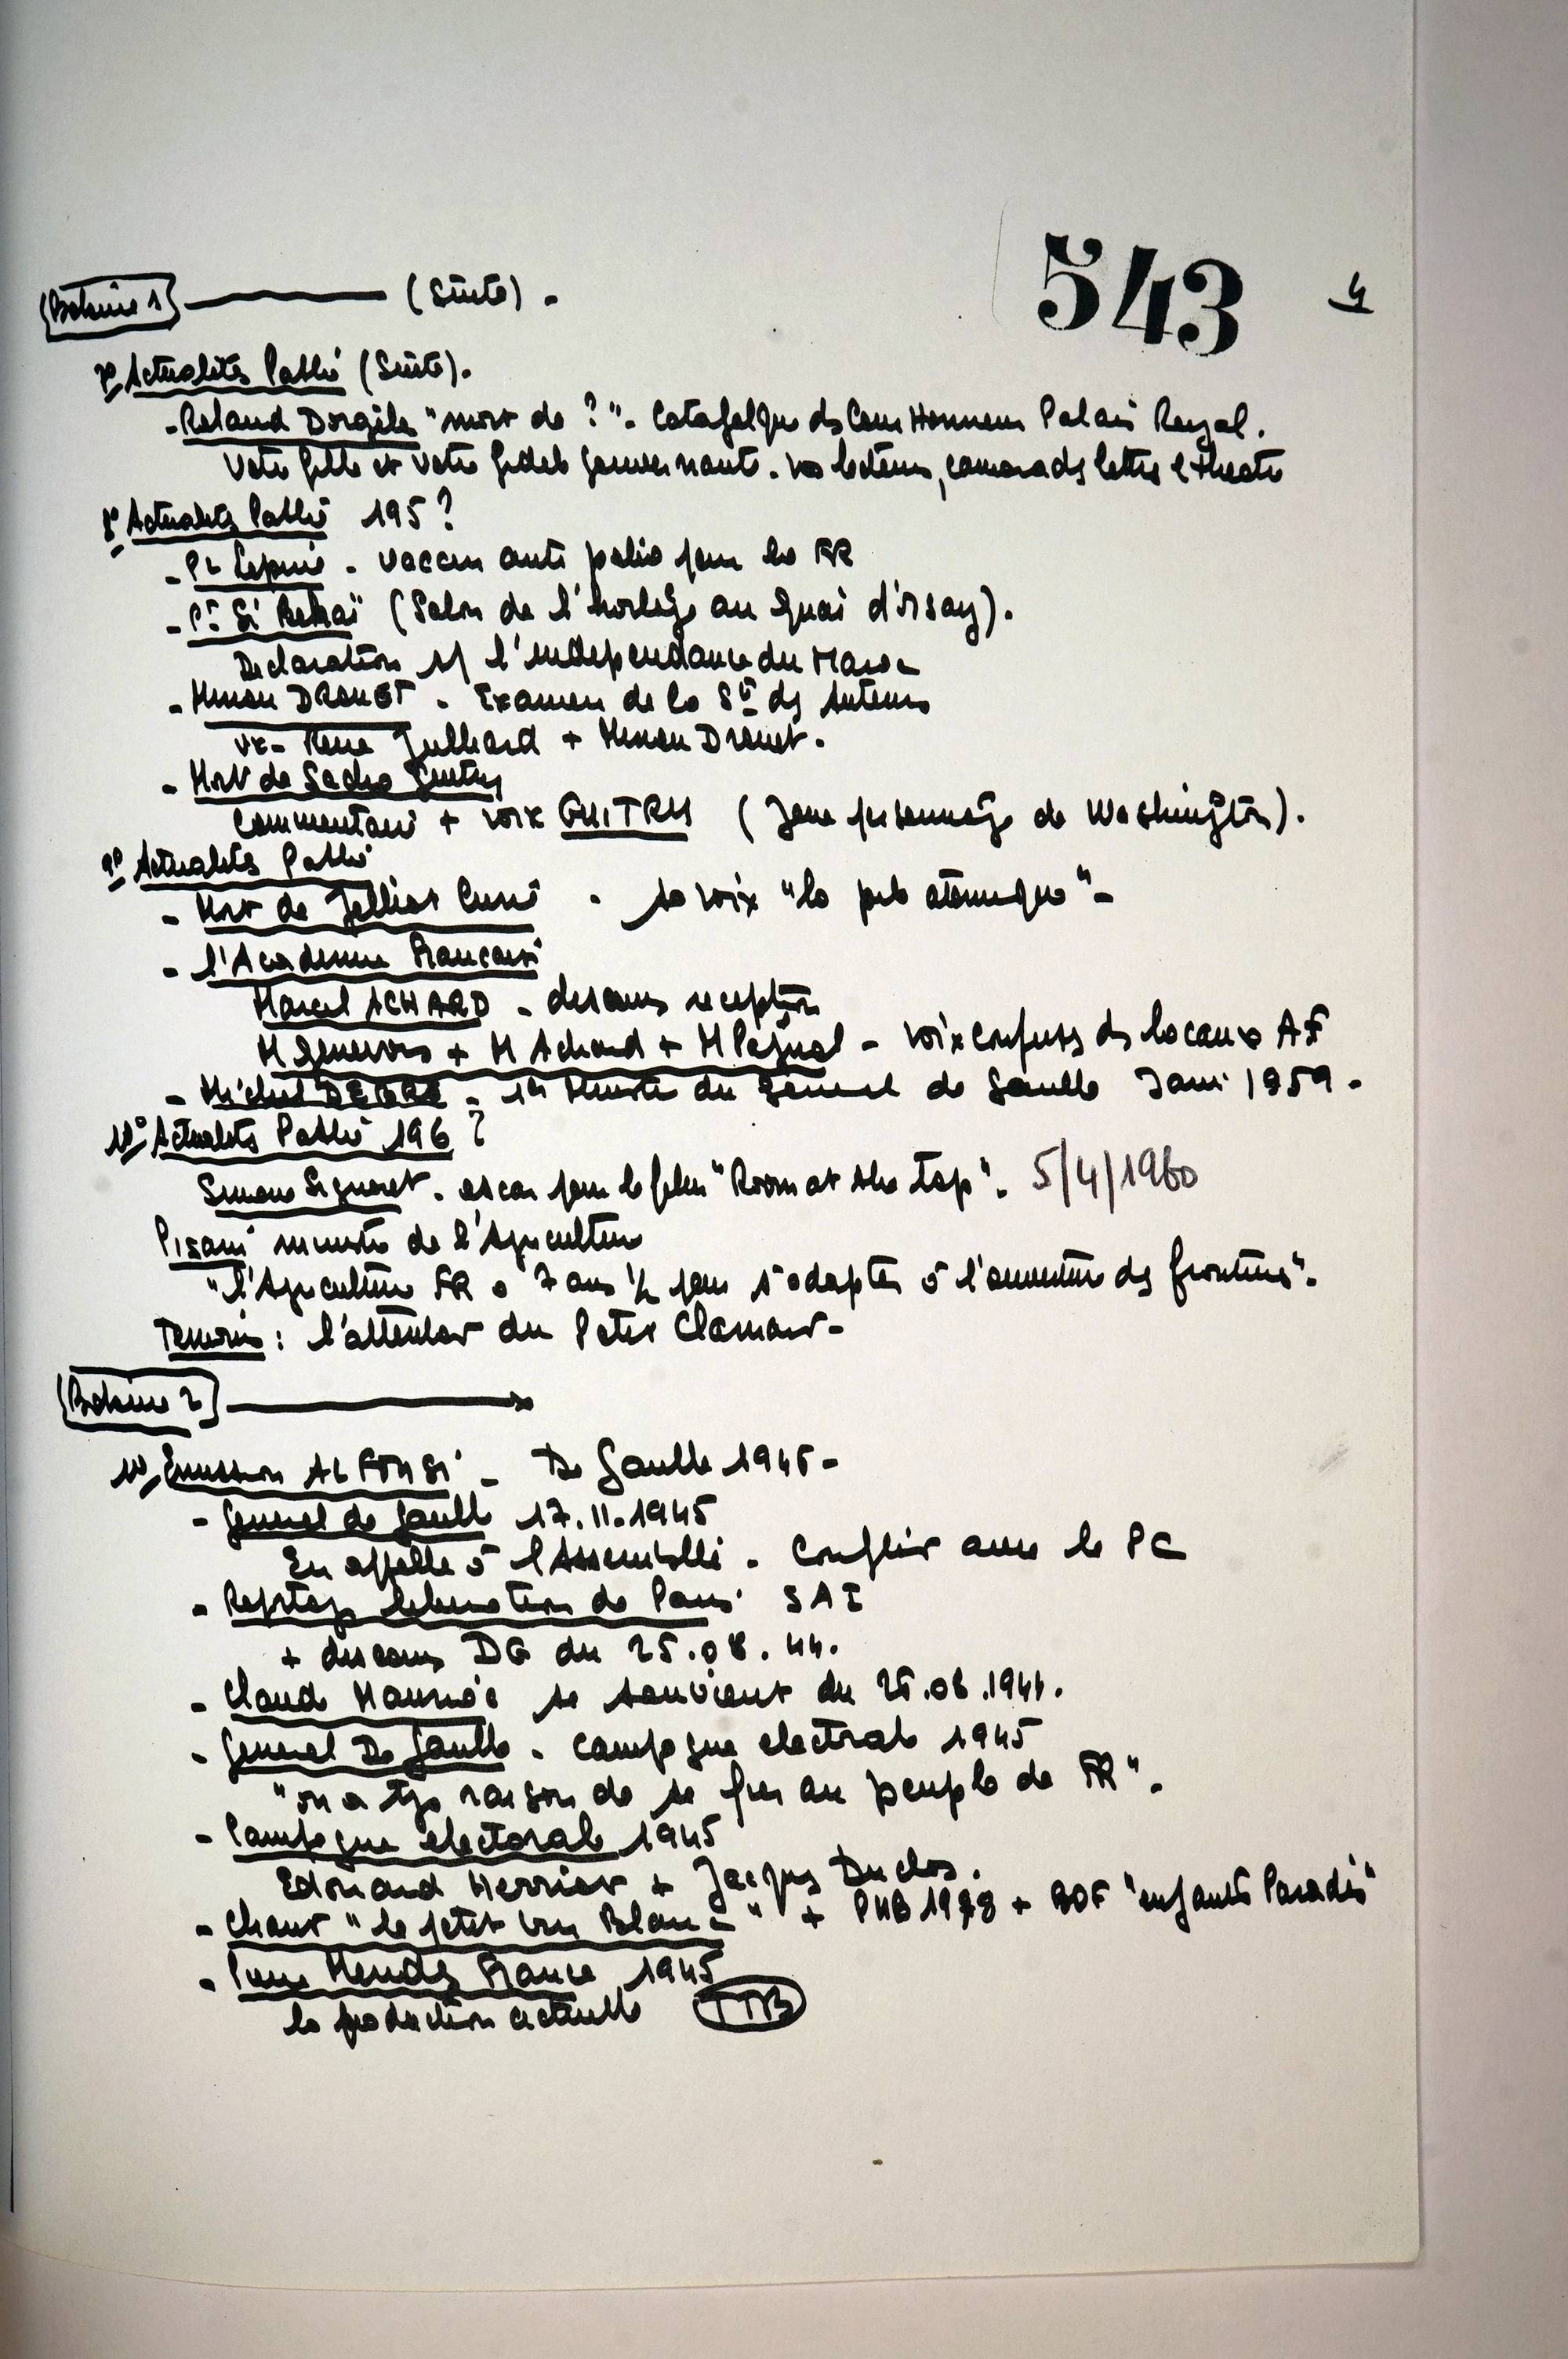 543
4
Bobine 1 (Suite).
7° Actualités Pathé (Suite).
- Roland Dorgelès "mort de ?". Catafalque ds Cour Honneur Palais Royal.
Votre fille et votre fidèle gouvernante. Vos lecteurs, camarads lettres et theatre
8° Actualités Pathé 195?
- Pr Lepine. Vaccin anti polio pour la FR
- Pt Si Bekaï (Salon de l'horloge au Quai d'Orsay).
Declaration s/ l'independance du Maroc
- Minou DROUET. Examen de la Sté ds Auteurs
Vx- Rene Julliard + Minou Drouet.
- Mort de Sacha Guitry
Commentaire + voix GUITRY (Joue personnage de Washington).
9° Actualités Pathé
- Mort de Jolliot Curie. Sa voix "la pile atomique"-
- l'Academie Francaise
Marcel ACHARD - discours reception
M Genevoix + M Achard + M Pagnol - Voix confuses ds locaux AF
- Michel DEBRE - 1er Ministre du General de Gaulle Janv 1959.
10° Actualités Pathé 196?
Simone Signoret. oscar pour le film "Room at the Top". 5/4/1960
Pisani ministre de l'Agriculture
"l'Agriculture FR a 7 ans 1/2 pour s'adapter à l'ouverture ds frontières".
Temoin : l'attentat du Petit Clamart-
Bobine 2
1°/ Emission ALFONSI - De Gaulle 1945-
- General de Gaulle 17.11.1945
En appelle à l'Assemblée. Conflit avec le PC
- Reptage liberation de Paris SAI
+ discours DG du 25.08.44.
- Claude Mauriac se souvient du 25.08.1944.
- General De Gaulle. campagne electorale 1945
"on a tjs raison de se fier au peuple de FR".
- Campagne electorale 1945
Edouard Herriot + Jacques Duclos.
- Chant "le petit vin Blanc" + PUB 1978 + BOF "enfants Paradis"
- Pierre Mendes France 1945
la production actuelle TTB